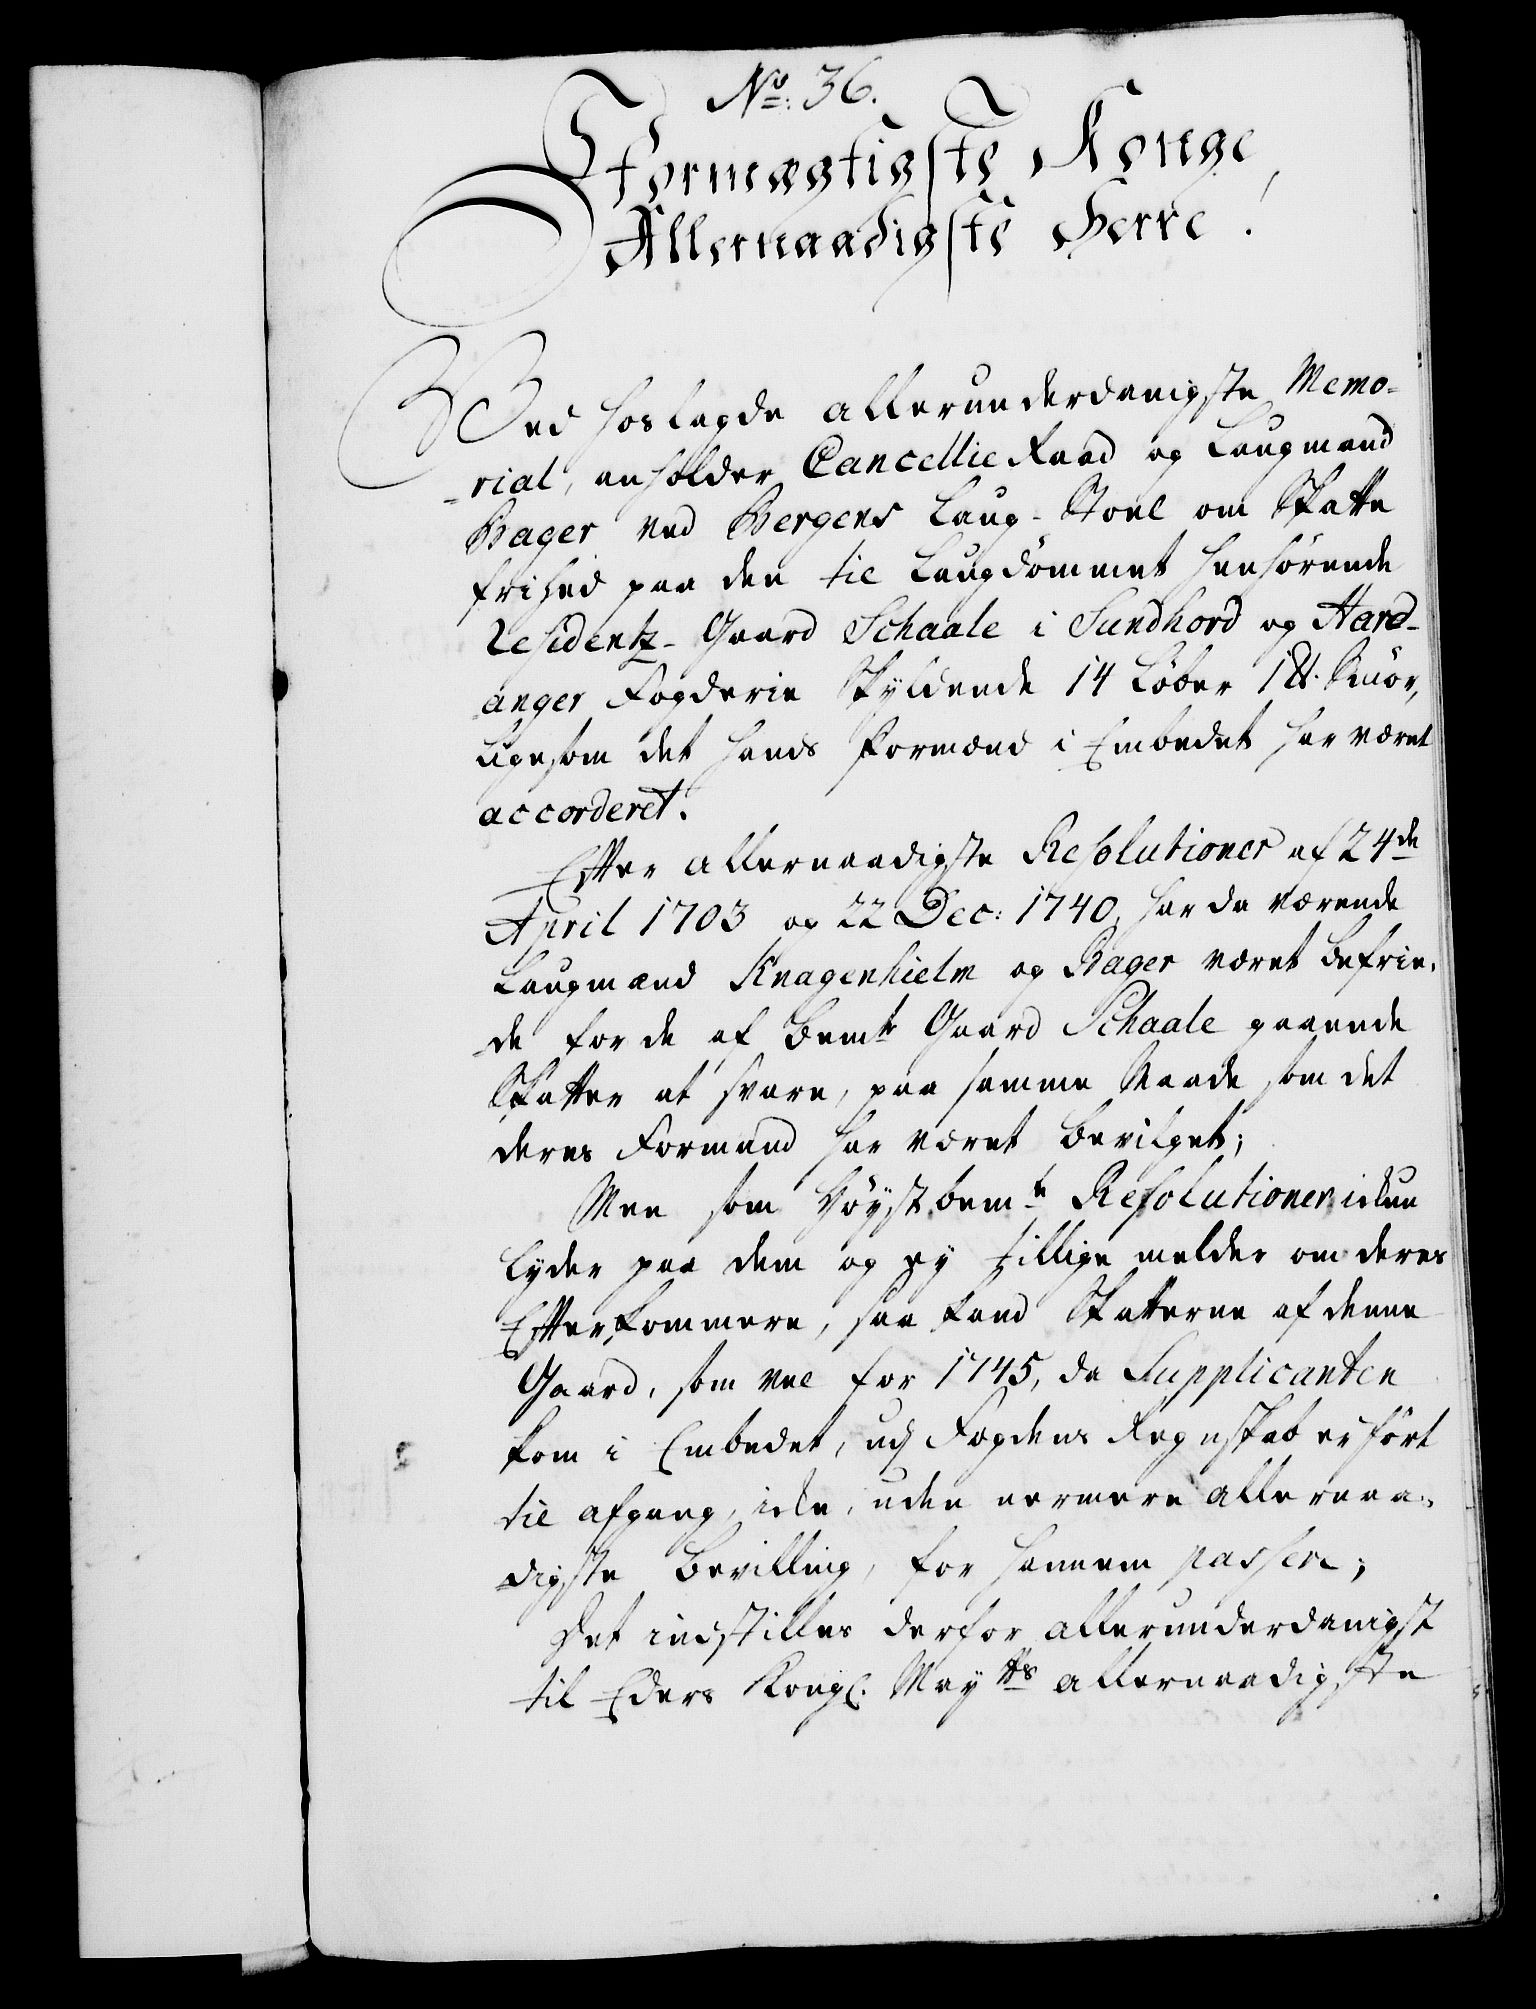 No: 36.
Stormægtigste Konge,
Allernaadigste Herre!
Ved hoslagde allerunderdanigste Memo-
-rial, anholder Cancellie Raad og Laugmand
Bager ved Bergens Laug-Stoel om Skatte
frihed paa den til Laugdømmet henhørende
Residentz-Gaard Schaale i Sundhord og Hard-
anger Fogderie Skyldende 14 Løber 18 ℔. Smør,
ligesom det hands Formænd i Embedet har været
accorderet.
Efter allernaadigste Resolutioner af 24de
April 1703 og 22 Dec: 1740, har da værende
Laugmænd Knagenhielm og Bager været befrie-
de for de af bemte Gaard Schaale gaaende
Skatter at svare, paa samme Maade som det
deres Formænd har været bevilget;
Men som høystbemte Resolutioner ickun
lyder paa dem og ey tillige melder om deres
Efterkommere, saa kand Skatterne af denne
Gaard, som vel for 1745, da Supplicanten
kom i Embedet, udj Fogdens Regnskab er ført
til afgang, icke, uden nermere allernaa-
digste Bevilling, for hannem passere;
Det indstilles derfor allerunderdanigst
til Eders Kongl. Mayts allernaadigste